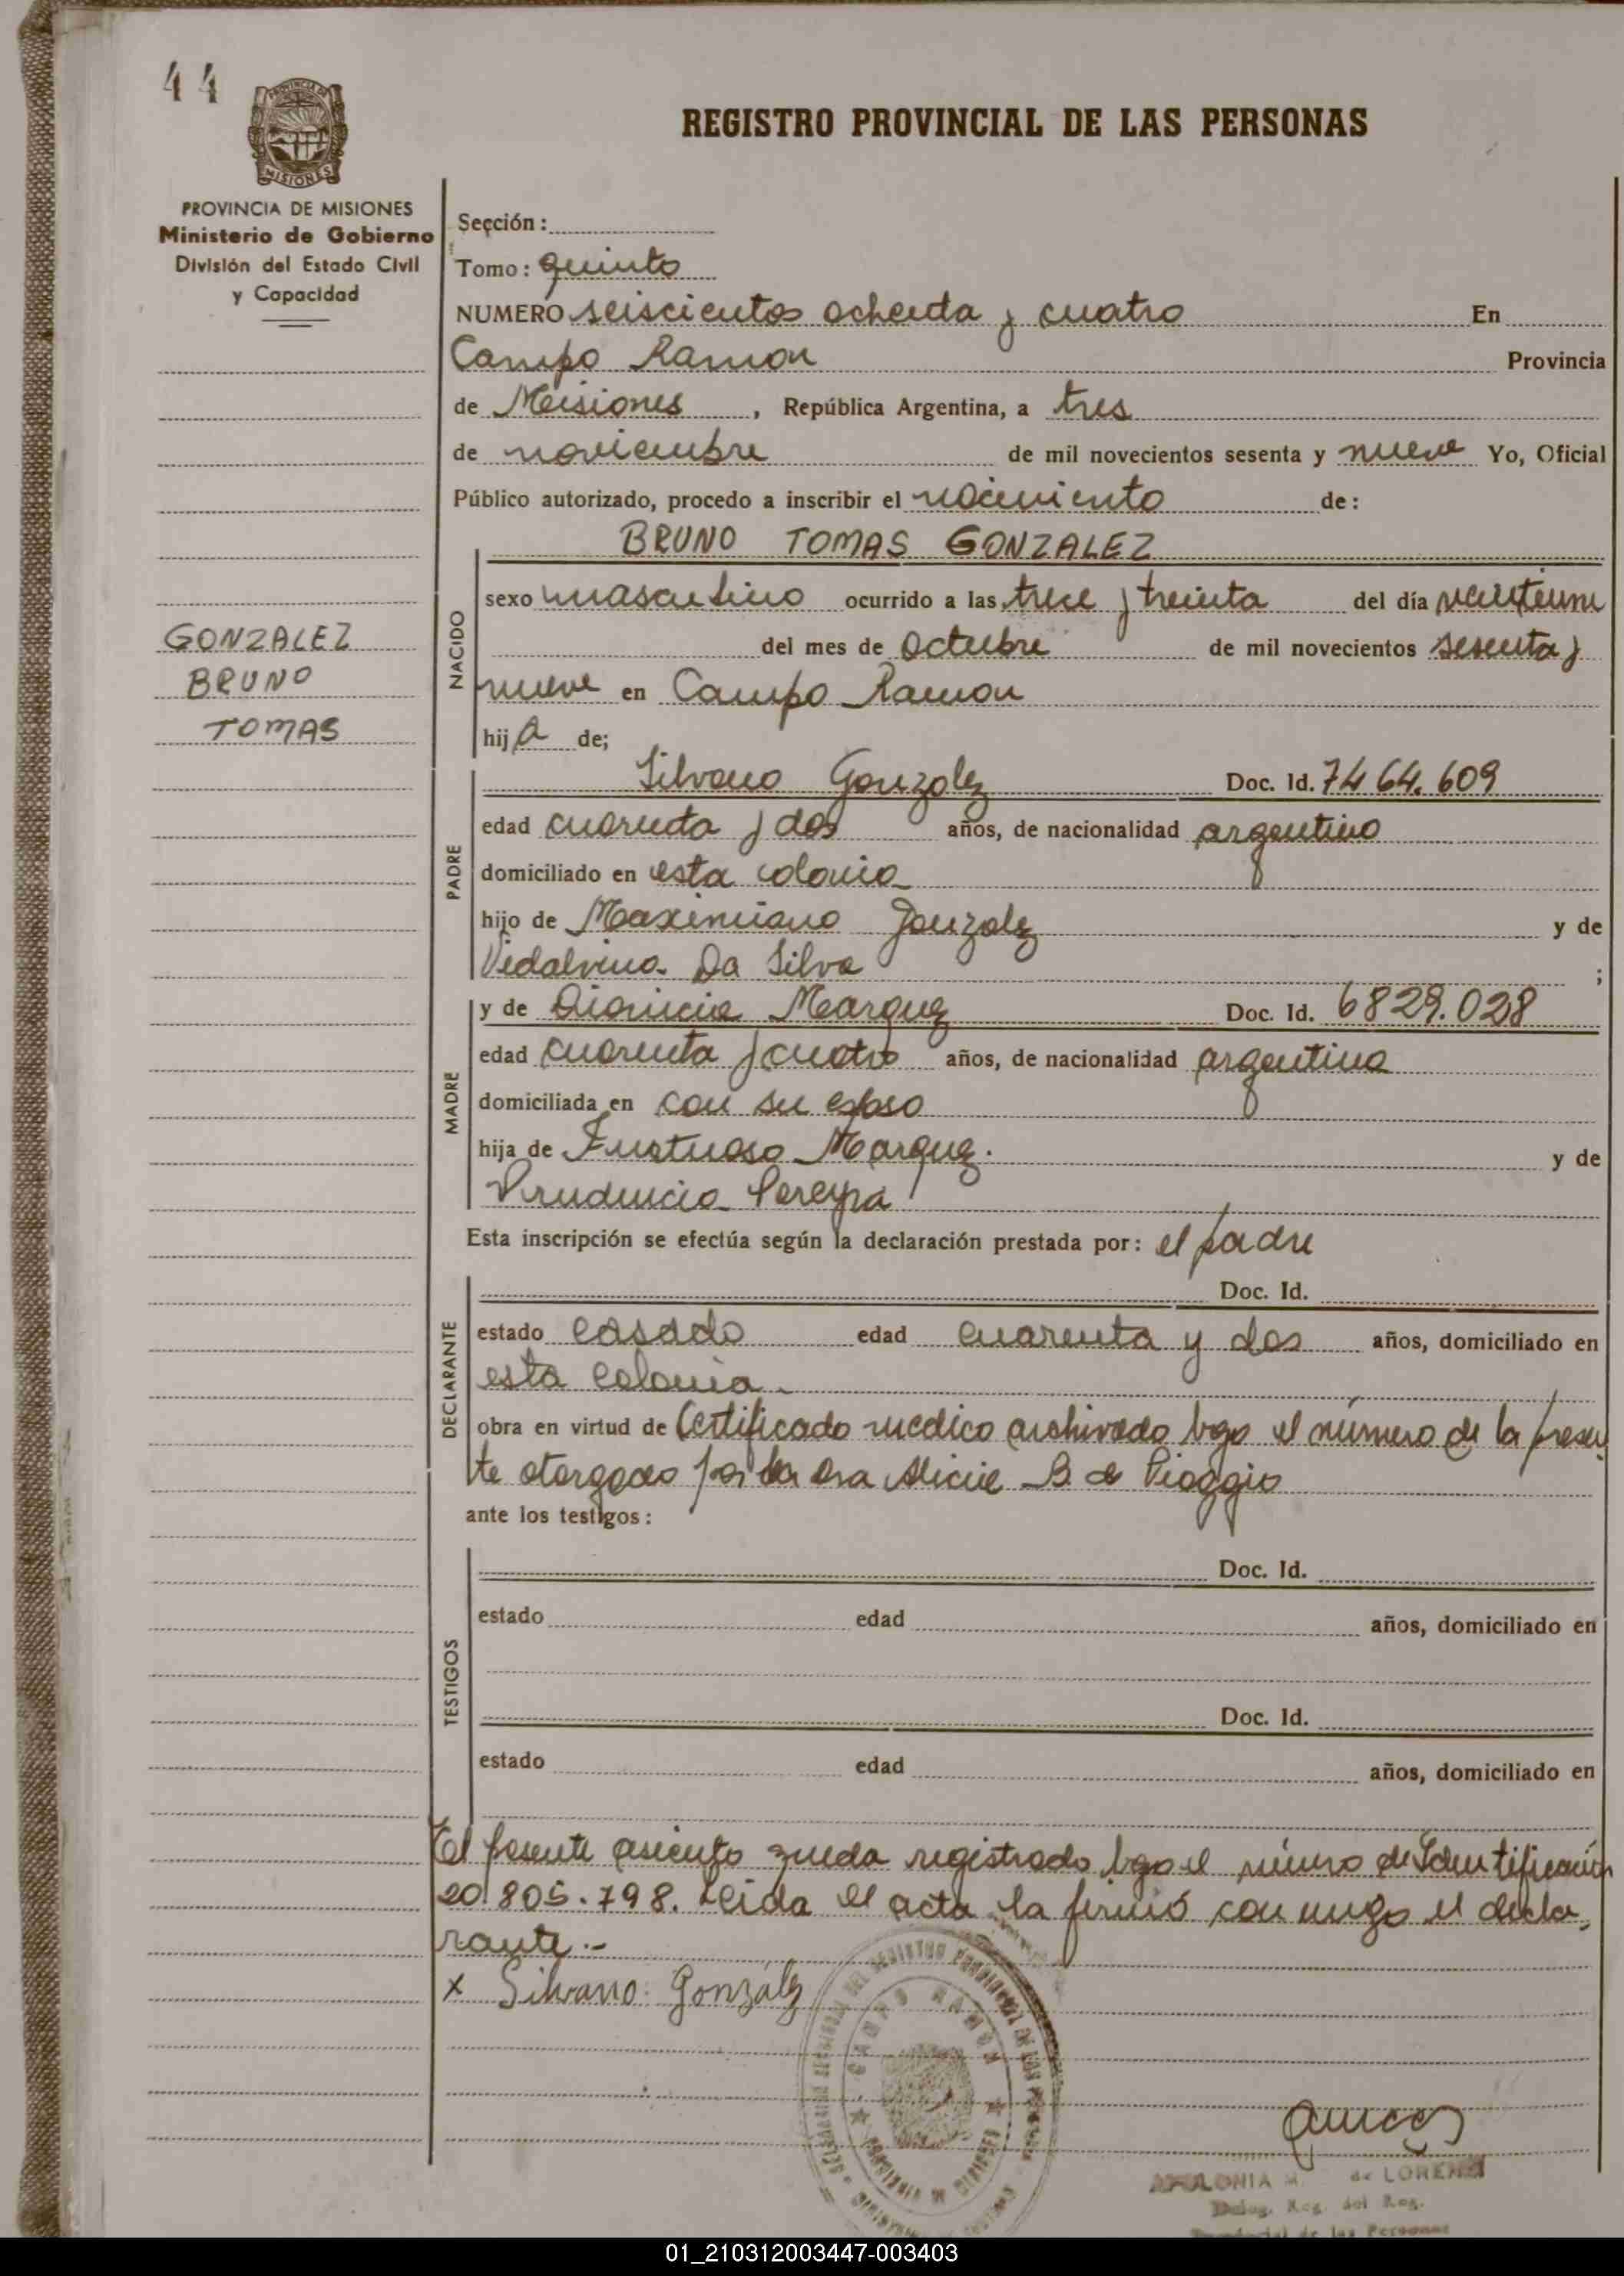 44
REGISTRO PROVINCIAL DE LAS PERSONAS
MISIONES
PROVINCIA DE MISIONES
Ministerio de Gobierno
División del Estado Civil
y Capacidad
Sección:
Tomo: quinto
NUMERO seiscientos ochenta y cuatro En
Campo Ramon Provincia
de Misiones, República Argentina, a tres
de noviembre de mil novecientos sesenta y nueve Yo, Oficial
Público autorizado, procedo a inscribir el nacimiento de:
BRUNO TOMAS GONZALEZ
GONZALEZ
BRUNO
TOMAS
NACIDO
sexo masculino ocurrido a las trece y treinta del día veintiuno
del mes de octubre de mil novecientos sesenta y
nueve en Campo Ramon
hijo de;
PADRE
Silvano Gonzalez Doc. Id. 7464.609
edad cuarenta y dos años, de nacionalidad argentino
domiciliado en esta colonia
hijo de Maximiano Gonzalez y de
Vidalvina Da Silva ;
MADRE
y de Dionicia Marquez Doc. Id. 6829.028
edad cuarenta y cuatro años, de nacionalidad argentina
domiciliada en con su esposo
hija de Frutuoso Marquez. y de
Prudencia Pereyra
Esta inscripción se efectúa según la declaración prestada por: el padre
DECLARANTE
Doc. Id.
estado casado edad cuarenta y dos años, domiciliado en
esta colonia.
obra en virtud de Certificado medico archivado bajo el número de la presen
te otorgado por la Dra Alicia B. de Pioggio
ante los testigos:
TESTIGOS
Doc. Id.
estado edad años, domiciliado en
Doc. Id.
estado edad años, domiciliado en
El presente asiento queda registrado bajo el número de Identificación
20.805.798. Leida el acta la firmó con migo el decla
rante.-
x Silvano Gonzálz
CAMPO RAMON
PROVINCIA DE MISIONES
de LORENZ
Deleg. Reg. del Reg.
Provincial de las Personas
01_210312003447-003403